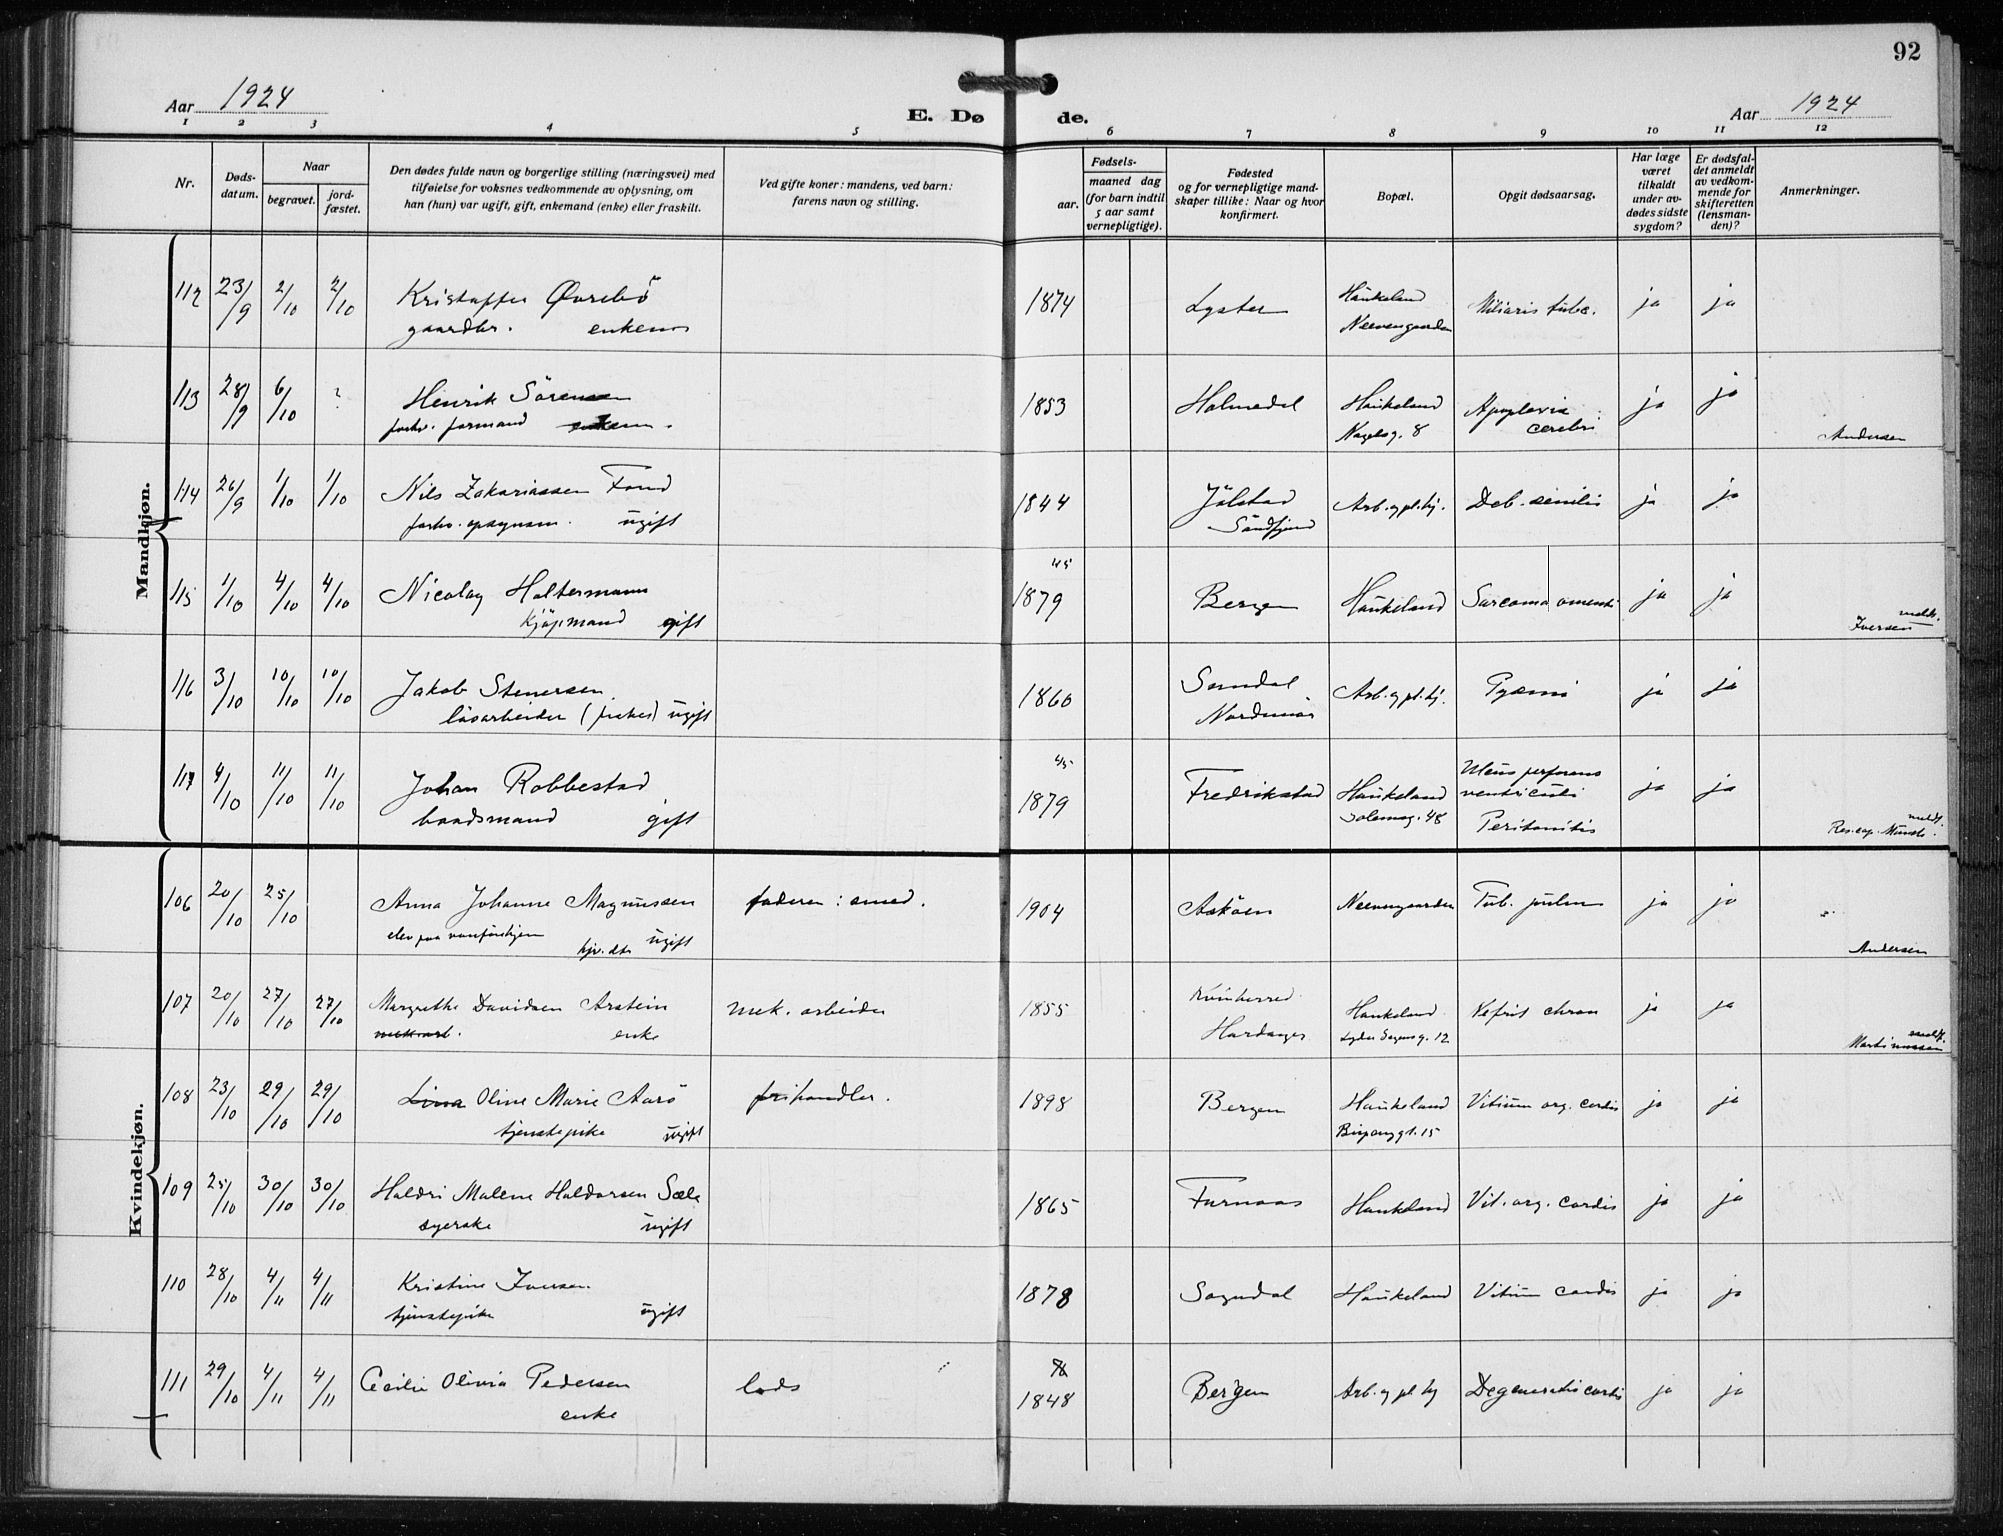 92
Aar 1924
E. Dø de.
Aar 1924
1 2 3 4 5 6 7 8 9 10 11 12
Nr.
Døds-
datum.
Naar
begravet.
jord-
fæstet.
Den dødes fulde navn og borgerlige stilling (næringsvei) med
tilføielse for voksnes vedkommende av oplysning, om
han (hun) var ugift, gift, enkemand (enke) eller fraskilt.
Ved gifte koner: mandens, ved barn:
farens navn og stilling.
Fødsels-
aar.
maaned dag
(for barn indtil
5 aar samt
vernepligtige).
Fødested
og for vernepligtige mand-
skaper tillike: Naar og hvor
konfirmert.
Bopæl.
Opgit dødsaarsag.
Har læge
været
tilkaldt
under av-
dødes sidste
sygdom?
Er dødsfal-
det anmeldt
av vedkom-
mende for
skifteretten
(lensman-
den)?
Anmerkninger.
Mandkjøn.
112 23/9 2/10 2/10 Kristoffer Øvrebö 1874 Lyster Haukeland Miliaris tube. ja ja
gaardbr. enkem Neevengaarden
113 28/9 6/10 ? Henrik Sörensen 1853 Holmedal Haukeland Apoplexia ja ja
forhv. formand enkem. Nagelsg. 8 cerebri Andersen
114 26/9 1/10 1/10 Nils Zakariassen Fond 1844 Jölstad Arb.og pl.hj. Deb. senilis ja ja
forhv. opsynsm. ugift Söndfjord
45
115 1/10 4/10 4/10 Nicolay Holtermann 1879 Bergen Haukeland Sarcoma omenti ja ja
Kjöpmand gift meldt.
Iversen
116 3/10 10/10 10/10 Jakob Stenersen 1860 Sundal Arb.og pl.hj. Pyæmi ja ja
lösarbeider (fisker) ugift Nordmör
45
117 4/10 11/10 11/10 Johan Robbestad 1879 Fredrikstad Haukeland Ulcus perforans ventriculi ja ja
baadsmand gift Solemsg. 48 Peritonitis meldt.
Res.cap. Munch
Kvindekjøn.
106 20/10 25/10 Anna Johanne Magnussen faderen: smed. 1904 Asköen Neevengaarden Tub. pulm ja ja
elev paa vanförehjem hjv. dtr ugift Andersen
107 20/10 27/10 27/10 Margrethe Davidsen Arstein mek. arbeider 1855 Kvinherred Haukeland Nefrit chron ja ja
mek arb. enke Hardanger Lyder Sagensg. 12 meldt.
Martinussen
108 23/10 29/10 29/10 Lina Oline Marie Aarö frihandler. 1898 Bergen Haukeland Vitium org. cordis ja ja
tjenstepike ugift
109 25/10 30/10 30/10 Haldri Malene Haldorsen Sæle 1865 Furnaas Haukeland Vit. org. cordis ja ja
syerske ugift
110 28/10 4/11 4/11 Kristine Iversen 1878 Sogndal Haukeland Vitium cordis ja ja
tjenstepike ugift
111 29/10 4/11 4/11 Cecilie Olivia Pedersen lods 1848 Bergen Arb.og pl hj Degeneratio cordis ja ja
enke